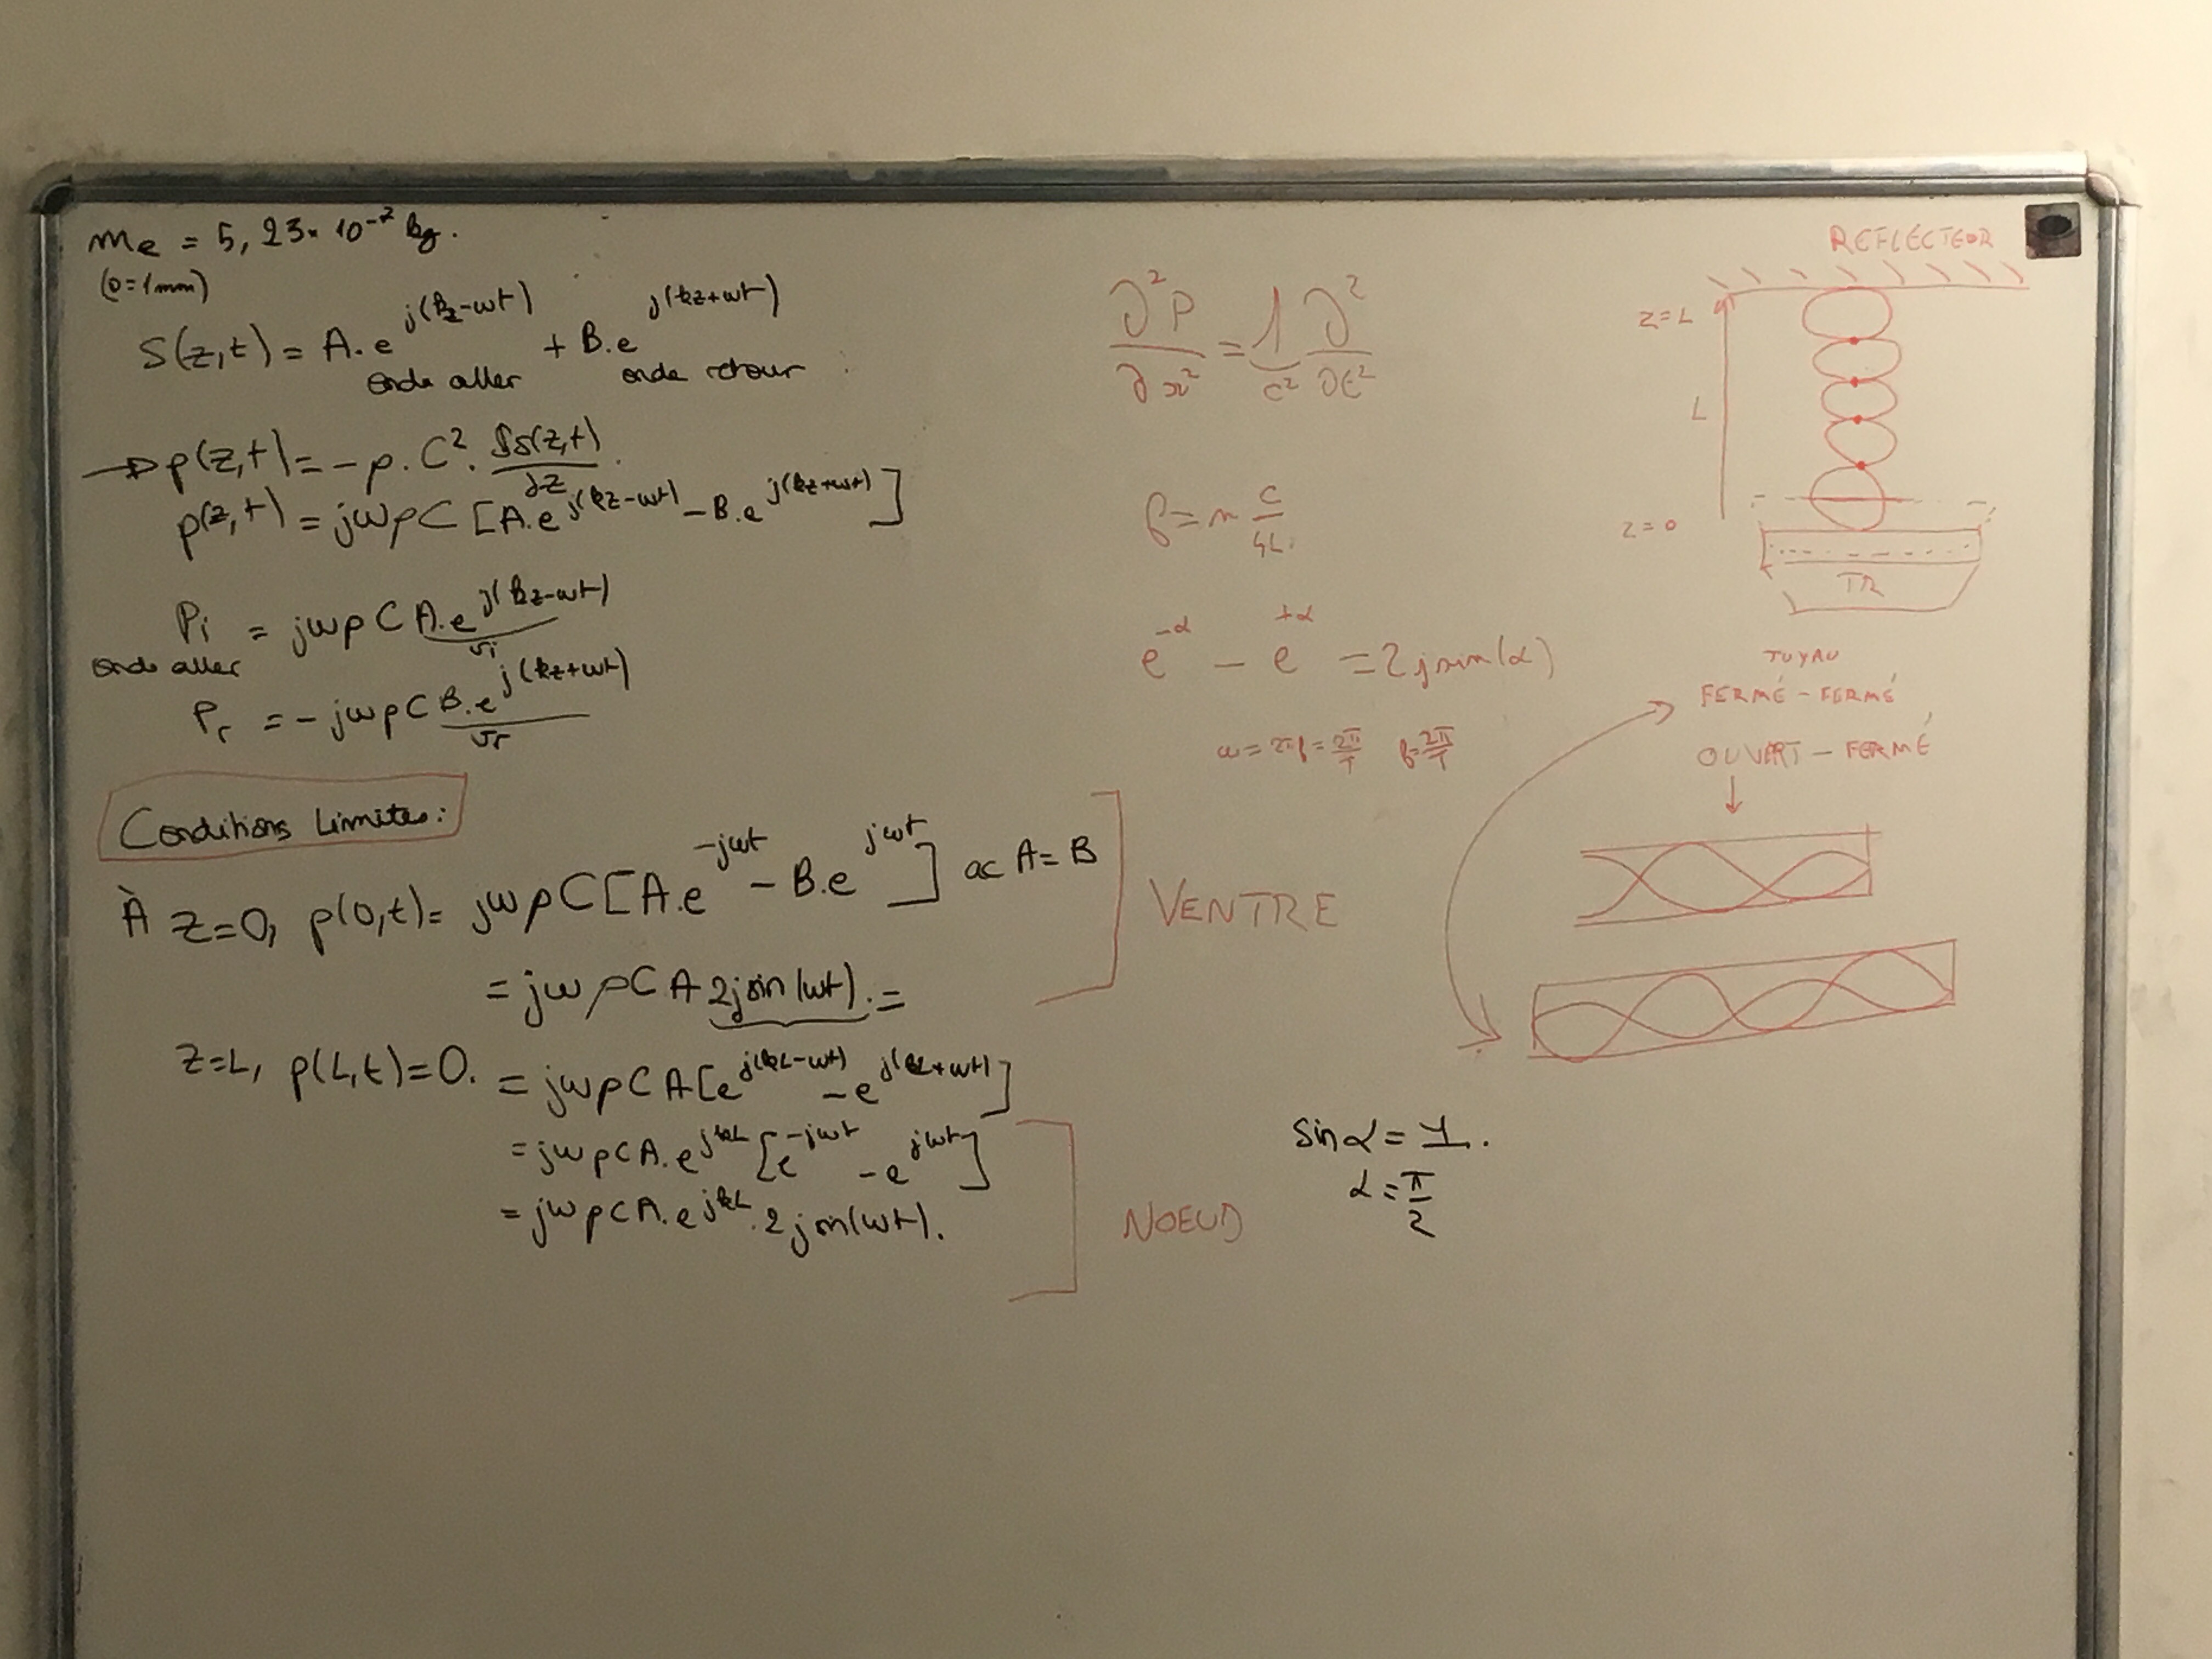 me = 5,23×10⁻⁷ kg.
(D=1mm)
S(z,t) = A.e^{j(kz-ωt)} + B.e^{j(kz+ωt)}
onde aller onde retour
→ p(z,t) = -ρ.C².∂S(z,t)/∂z.
p(z,t) = jωρC [A.e^{j(kz-ωt)} - B.e^{j(kz+ωt)}]
Pi = jωρC A.e^{j(kz-ωt)}
onde aller
Pr = -jωρC B.e^{j(kz+ωt)}
Conditions Limites:
À z=0, p(0,t) = jωρC[A.e^{-jωt} - B.e^{jωt}] ac A=B
= jωρCA 2jsin(ωt). =
VENTRE
z=L, p(L,t)=0. = jωρCA[e^{j(kL-ωt)} - e^{j(kL+ωt)}]
= jωρCA.e^{jkL}[e^{-jωt} - e^{jωt}]
= jωρCA.e^{jkL}.2jsin(ωt).
NOEUD
∂²P/∂x² = 1/c² ∂²/∂t²
f = n c/4L
e^{-α} - e^{+α} = 2jsin(α)
ω = 2πf = 2π/T f=2π/T
sin α = 1.
α = π/2
RÉFLECTEUR
z=L
L
z=0
TR
TUYAU
FERMÉ - FERMÉ
OUVERT - FERMÉ